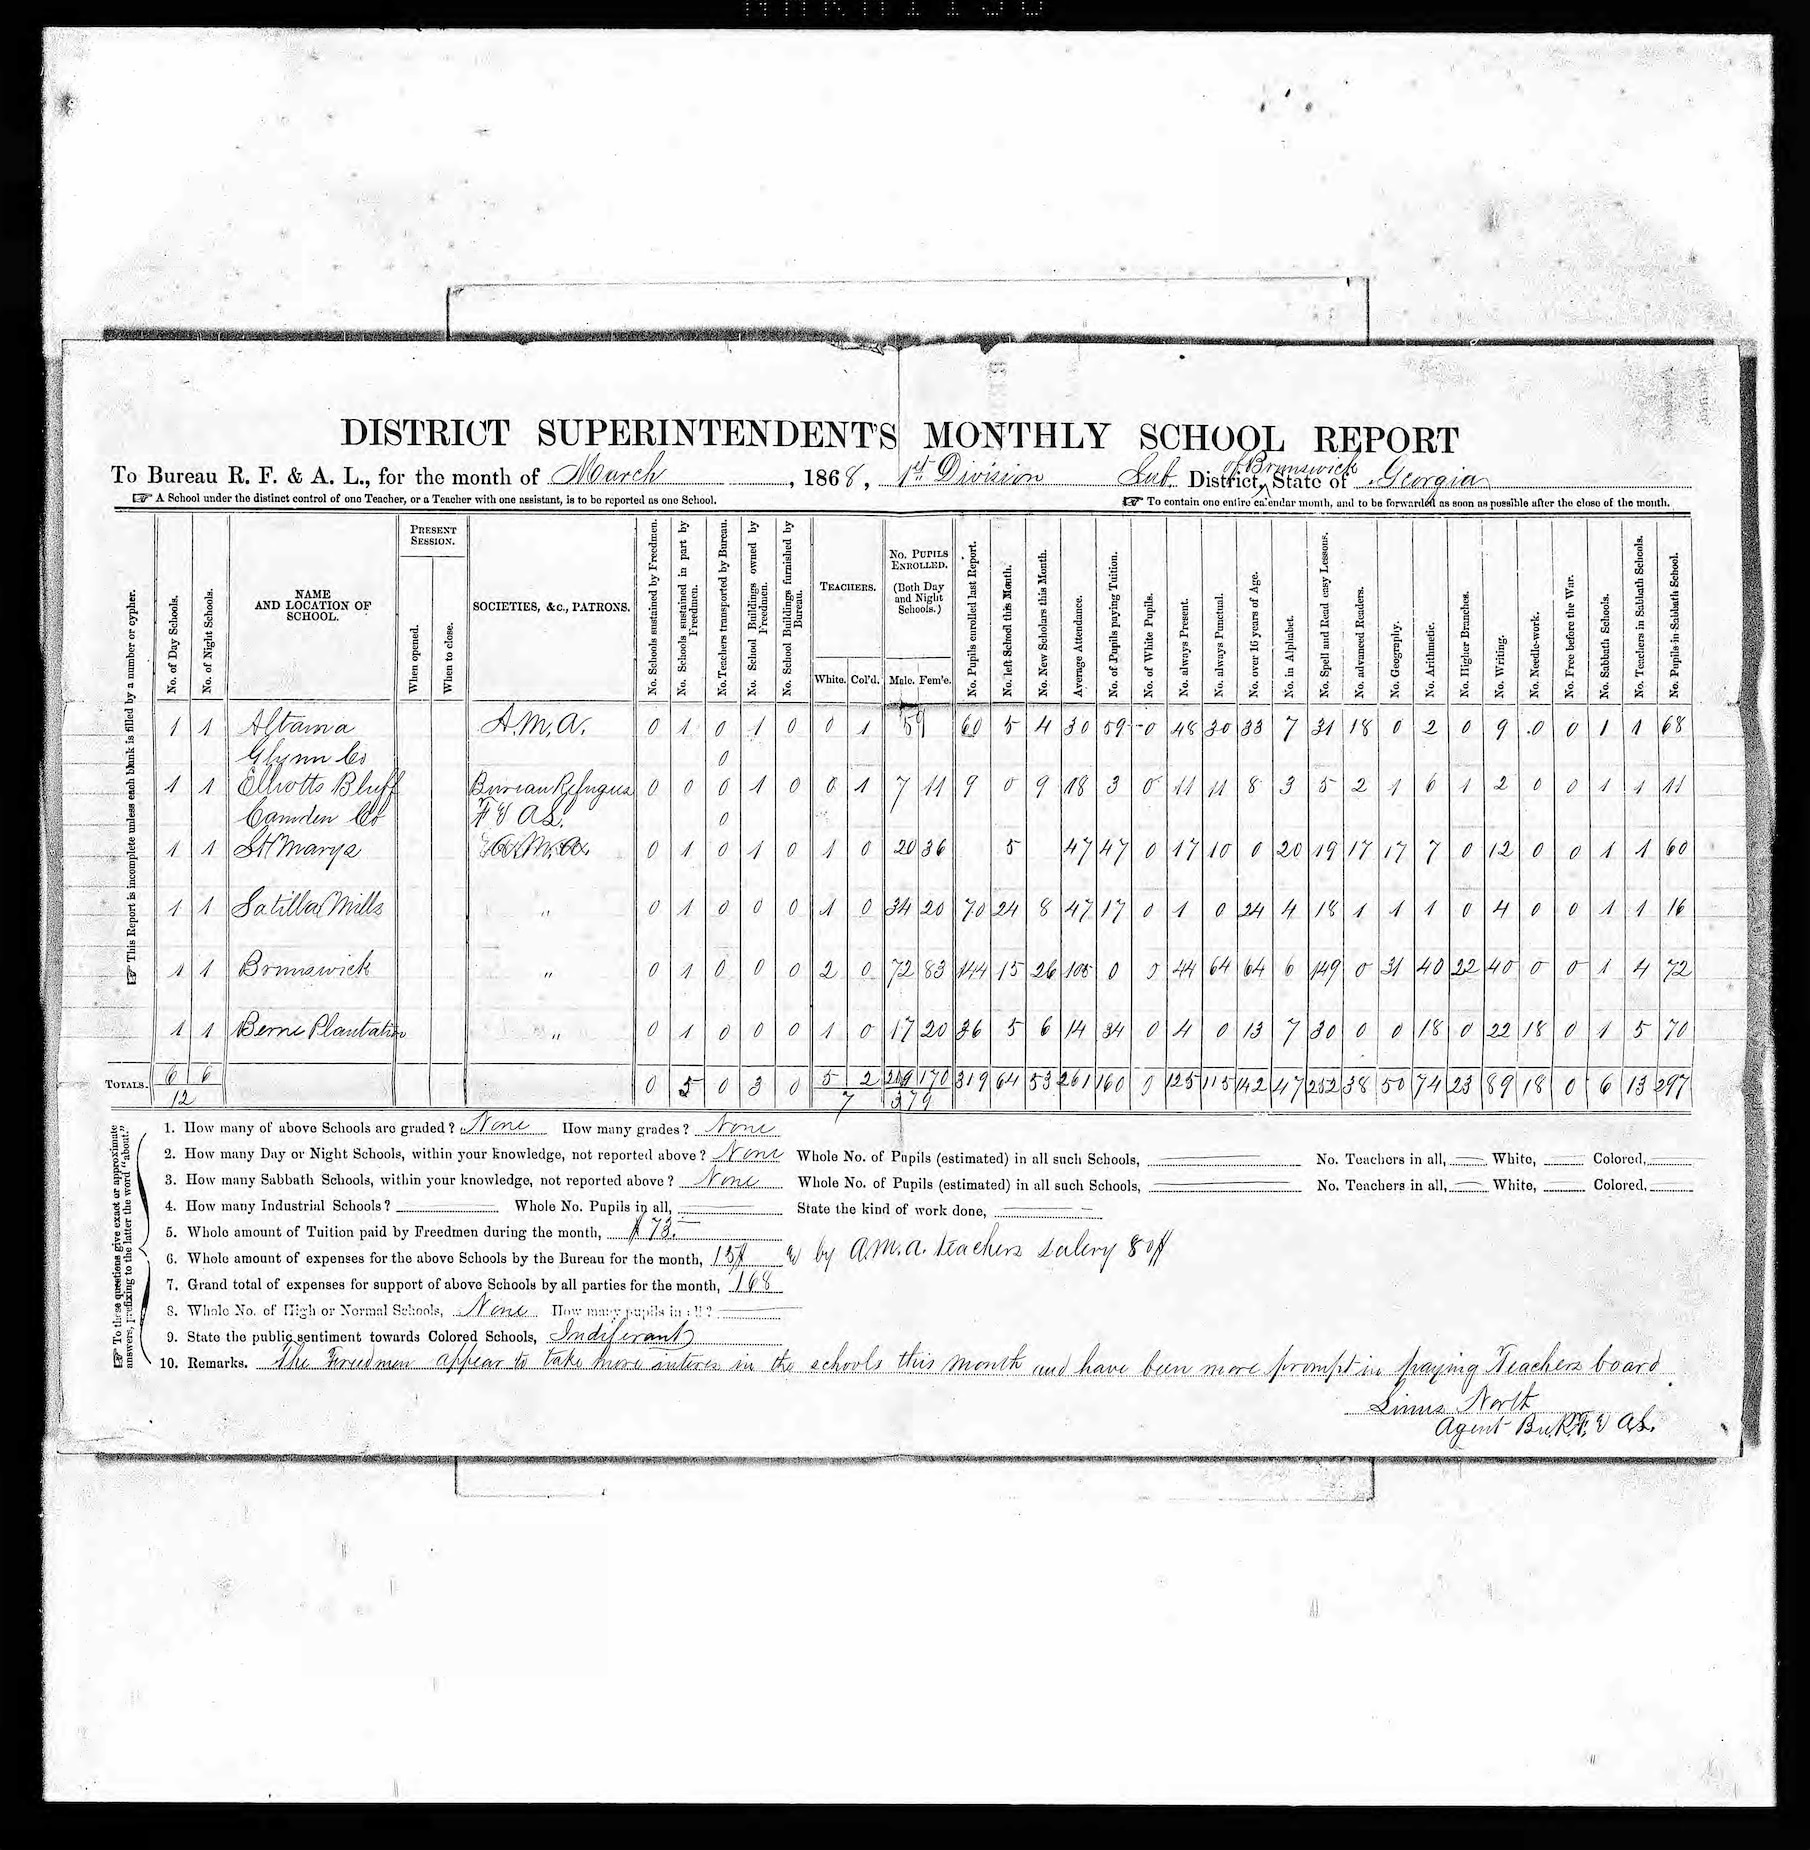 DISTRICT SUPERINTENDENT'S MONTHLY SCHOOL REPORT
To Bureau R. F. & A. L., for the month of March, 1868, 1st Division Sub District, of Brunswick State of Georgia
☞ A School under the distinct control of one Teacher, or a Teacher with one assistant, is to be reported as one School.
☞ To contain one entire calendar month, and to be forwarded as soon as possible after the close of the month.
☞ This Report is incomplete unless each blank is filled by a number or cypher.
No. of Day Schools.
No. of Night Schools.
NAME AND LOCATION OF SCHOOL.
PRESENT SESSION.
When opened.
When to close.
SOCIETIES, &c., PATRONS.
No. Schools sustained by Freedmen.
No. Schools sustained in part by Freedmen.
No. Teachers transported by Bureau.
No. School Buildings owned by Freedmen.
No. School Buildings furnished by Bureau.
TEACHERS.
White. Col'd.
No. PUPILS ENROLLED. (Both Day and Night Schools.)
Male. Fem'e.
No. Pupils enrolled last Report.
No. left School this Month.
No. New Scholars this Month.
Average Attendance.
No. of Pupils paying Tuition.
No. of White Pupils.
No. always Present.
No. always Punctual.
No. over 16 years of Age.
No. in Alphabet.
No. Spell and Read easy Lessons.
No. advanced Readers.
No. Geography.
No. Arithmetic.
No. Higher Branches.
No. Writing.
No. Needle-work.
No. Free before the War.
No. Sabbath Schools.
No. Teachers in Sabbath Schools.
No. Pupils in Sabbath School.
1 1 Altama A.M.A. 0 1 0 1 0 0 1 59 60 5 4 30 59 0 48 30 33 7 31 18 0 2 0 9 0 0 1 1 68
Glynn Co 0
1 1 Elliotts Bluff Bureau Refugus 0 0 0 1 0 0 1 7 11 9 0 9 18 3 0 11 11 8 3 5 2 1 6 1 2 0 0 1 1 11
Camden Co F & A L. 0
1 1 St Marys A.M.A. 0 1 0 1 0 1 0 20 36 5 47 47 0 17 10 0 20 19 17 17 7 0 12 0 0 1 1 60
1 1 Satilla Mills " 0 1 0 0 0 1 0 34 20 70 24 8 47 17 0 1 0 24 4 18 1 1 1 0 4 0 0 1 1 16
1 1 Brunswick " 0 1 0 0 0 2 0 72 83 144 15 26 105 0 0 44 64 64 6 149 0 31 40 22 40 0 0 1 4 72
1 1 Berne Plantation " 0 1 0 0 0 1 0 17 20 36 5 6 14 34 0 4 0 13 7 30 0 0 18 0 22 18 0 1 5 70
TOTALS. 6 6 0 5 0 3 0 5 2 209 170 319 64 53 261 160 0 125 115 142 47 252 38 50 74 23 89 18 0 6 13 297
12 7 379
☞ To these questions give exact or approximate answers, prefixing to the latter the word "about."
1. How many of above Schools are graded? None How many grades? None
2. How many Day or Night Schools, within your knowledge, not reported above? None Whole No. of Pupils (estimated) in all such Schools, No. Teachers in all, White, Colored,
3. How many Sabbath Schools, within your knowledge, not reported above? None Whole No. of Pupils (estimated) in all such Schools, No. Teachers in all, White, Colored,
4. How many Industrial Schools? Whole No. Pupils in all, State the kind of work done,
5. Whole amount of Tuition paid by Freedmen during the month, $ 73.
6. Whole amount of expenses for the above Schools by the Bureau for the month, 15 & by A.M.A. teachers salery 80
7. Grand total of expenses for support of above Schools by all parties for the month, 168
8. Whole No. of High or Normal Schools, None How many pupils in all?
9. State the public sentiment towards Colored Schools, Indiferant
10. Remarks. The Freedmen appear to take more interes in the schools this month and have been more prompt in paying Teachers board
Linus North
Agent Bu. R. F. & A L.